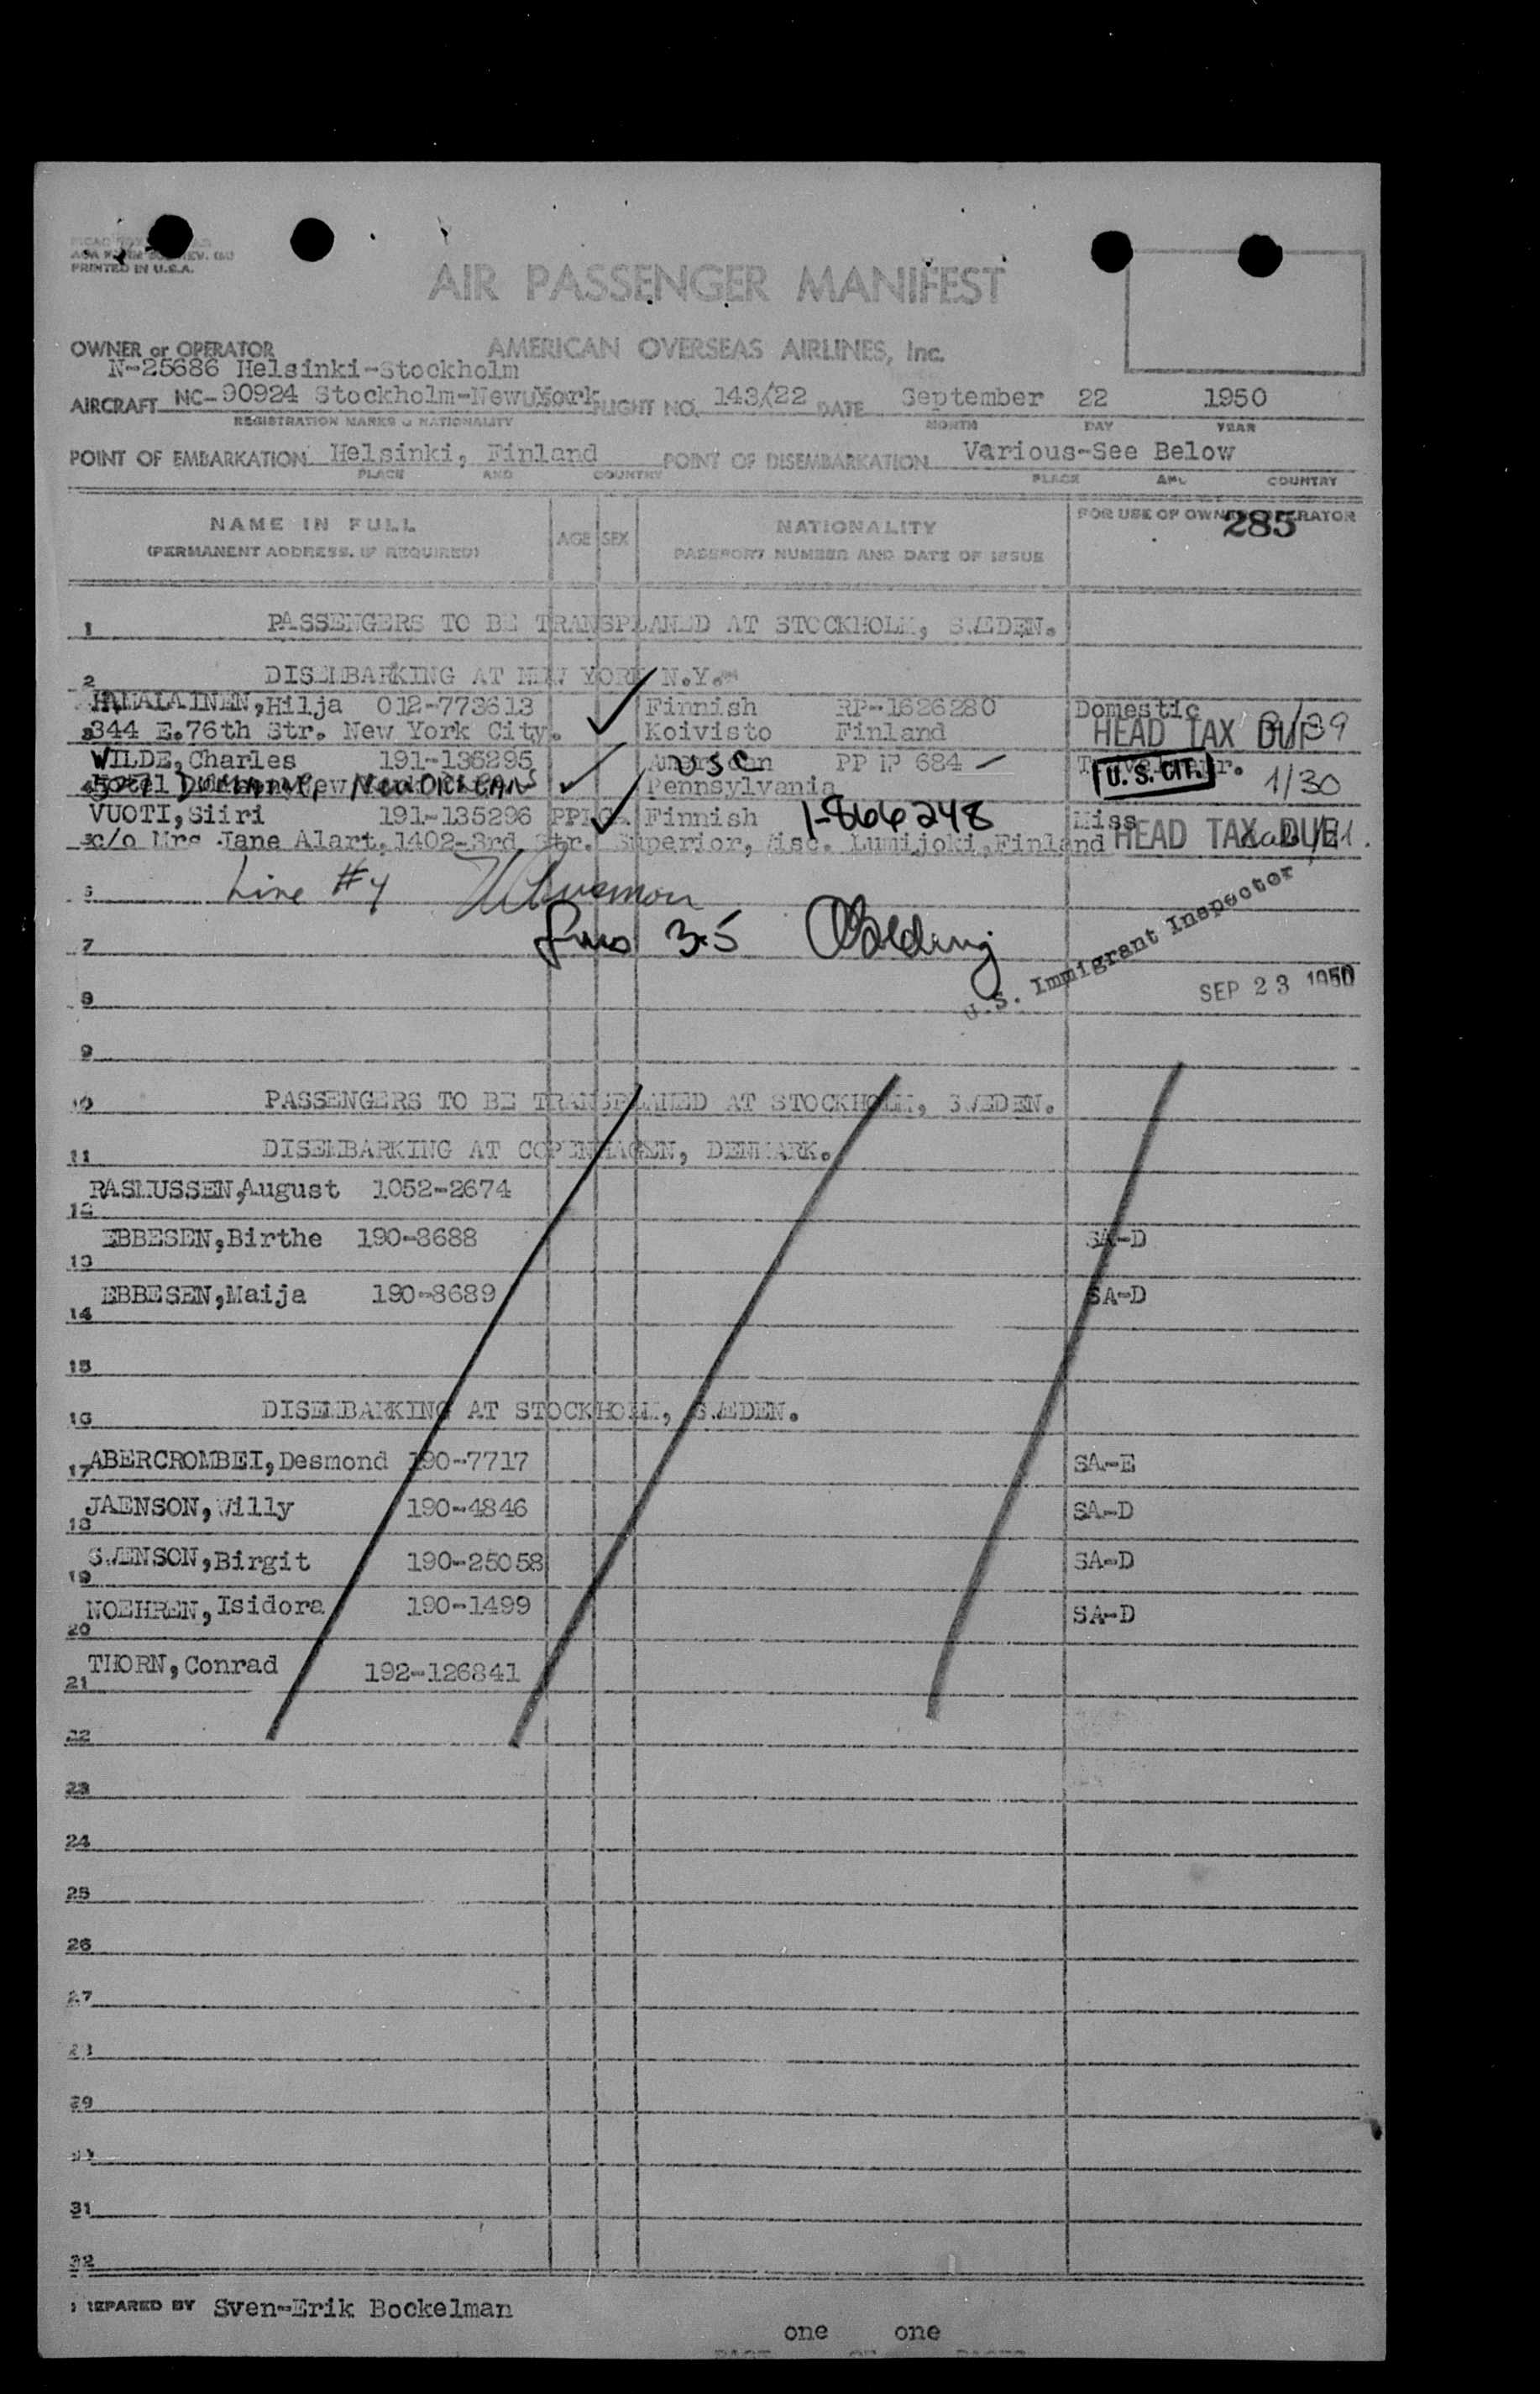 PRINTED IN U.S.A.
AIR PASSENGER MANIFEST
OWNER or OPERATOR AMERICAN OVERSEAS AIRLINES, Inc.
N-25686 Helsinki-Stockholm
AIRCRAFT NC-90924 Stockholm-New York FLIGHT NO. 143/22 DATE September 22 1950
REGISTRATION MARKS & NATIONALITY MONTH DAY YEAR
POINT OF EMBARKATION Helsinki, Finland POINT OF DISEMBARKATION Various-See Below
PLACE AND COUNTRY PLACE AND COUNTRY
NAME IN FULL AGE SEX NATIONALITY FOR USE OF OWNER OPERATOR
(PERMANENT ADDRESS, IF REQUIRED) PASSPORT NUMBER AND DATE OF ISSUE 285
1 PASSENGERS TO BE TRANSPLANED AT STOCKHOLM, SWEDEN.
2 DISEMBARKING AT NEW YORK N.Y.
HAMALAINEN, Hilja 012-773613 Finnish RP-1626280 Domestic
3 344 E. 76th Str. New York City. Koivisto Finland HEAD TAX DUE
WILDE, Charles 191-136295 American USC PP IP 684 U.S. CIT. 1/30
4 NEW ORLEANS Pennsylvania
VUOTI, Siiri 191-135296 Finnish 1-866248 Miss
5 c/o Mrs Jane Alart, 1402-3rd Str. Superior, Wisc. Lumijoki, Finland HEAD TAX DUE
6 Line #4
7 3-5
U.S. Immigrant Inspector
8 SEP 23 1950
9
10 PASSENGERS TO BE TRANSPLANED AT STOCKHOLM, SWEDEN.
11 DISEMBARKING AT COPENHAGEN, DENMARK.
RASMUSSEN, August 1052-2674
12
EBBESEN, Birthe 190-8688 SA-D
13
EBBESEN, Maija 190-8689 SA-D
14
15
16 DISEMBARKING AT STOCKHOLM, SWEDEN.
17 ABERCROMBEI, Desmond 190-7717 SA-E
JAENSON, Willy 190-4846 SA-D
18
SWENSON, Birgit 190-25058 SA-D
19
NOEHREN, Isidora 190-1499 SA-D
20
THORN, Conrad 192-126841
21
22
23
24
25
26
27
28
29
31
32
PREPARED BY Sven-Erik Bockelman
one one